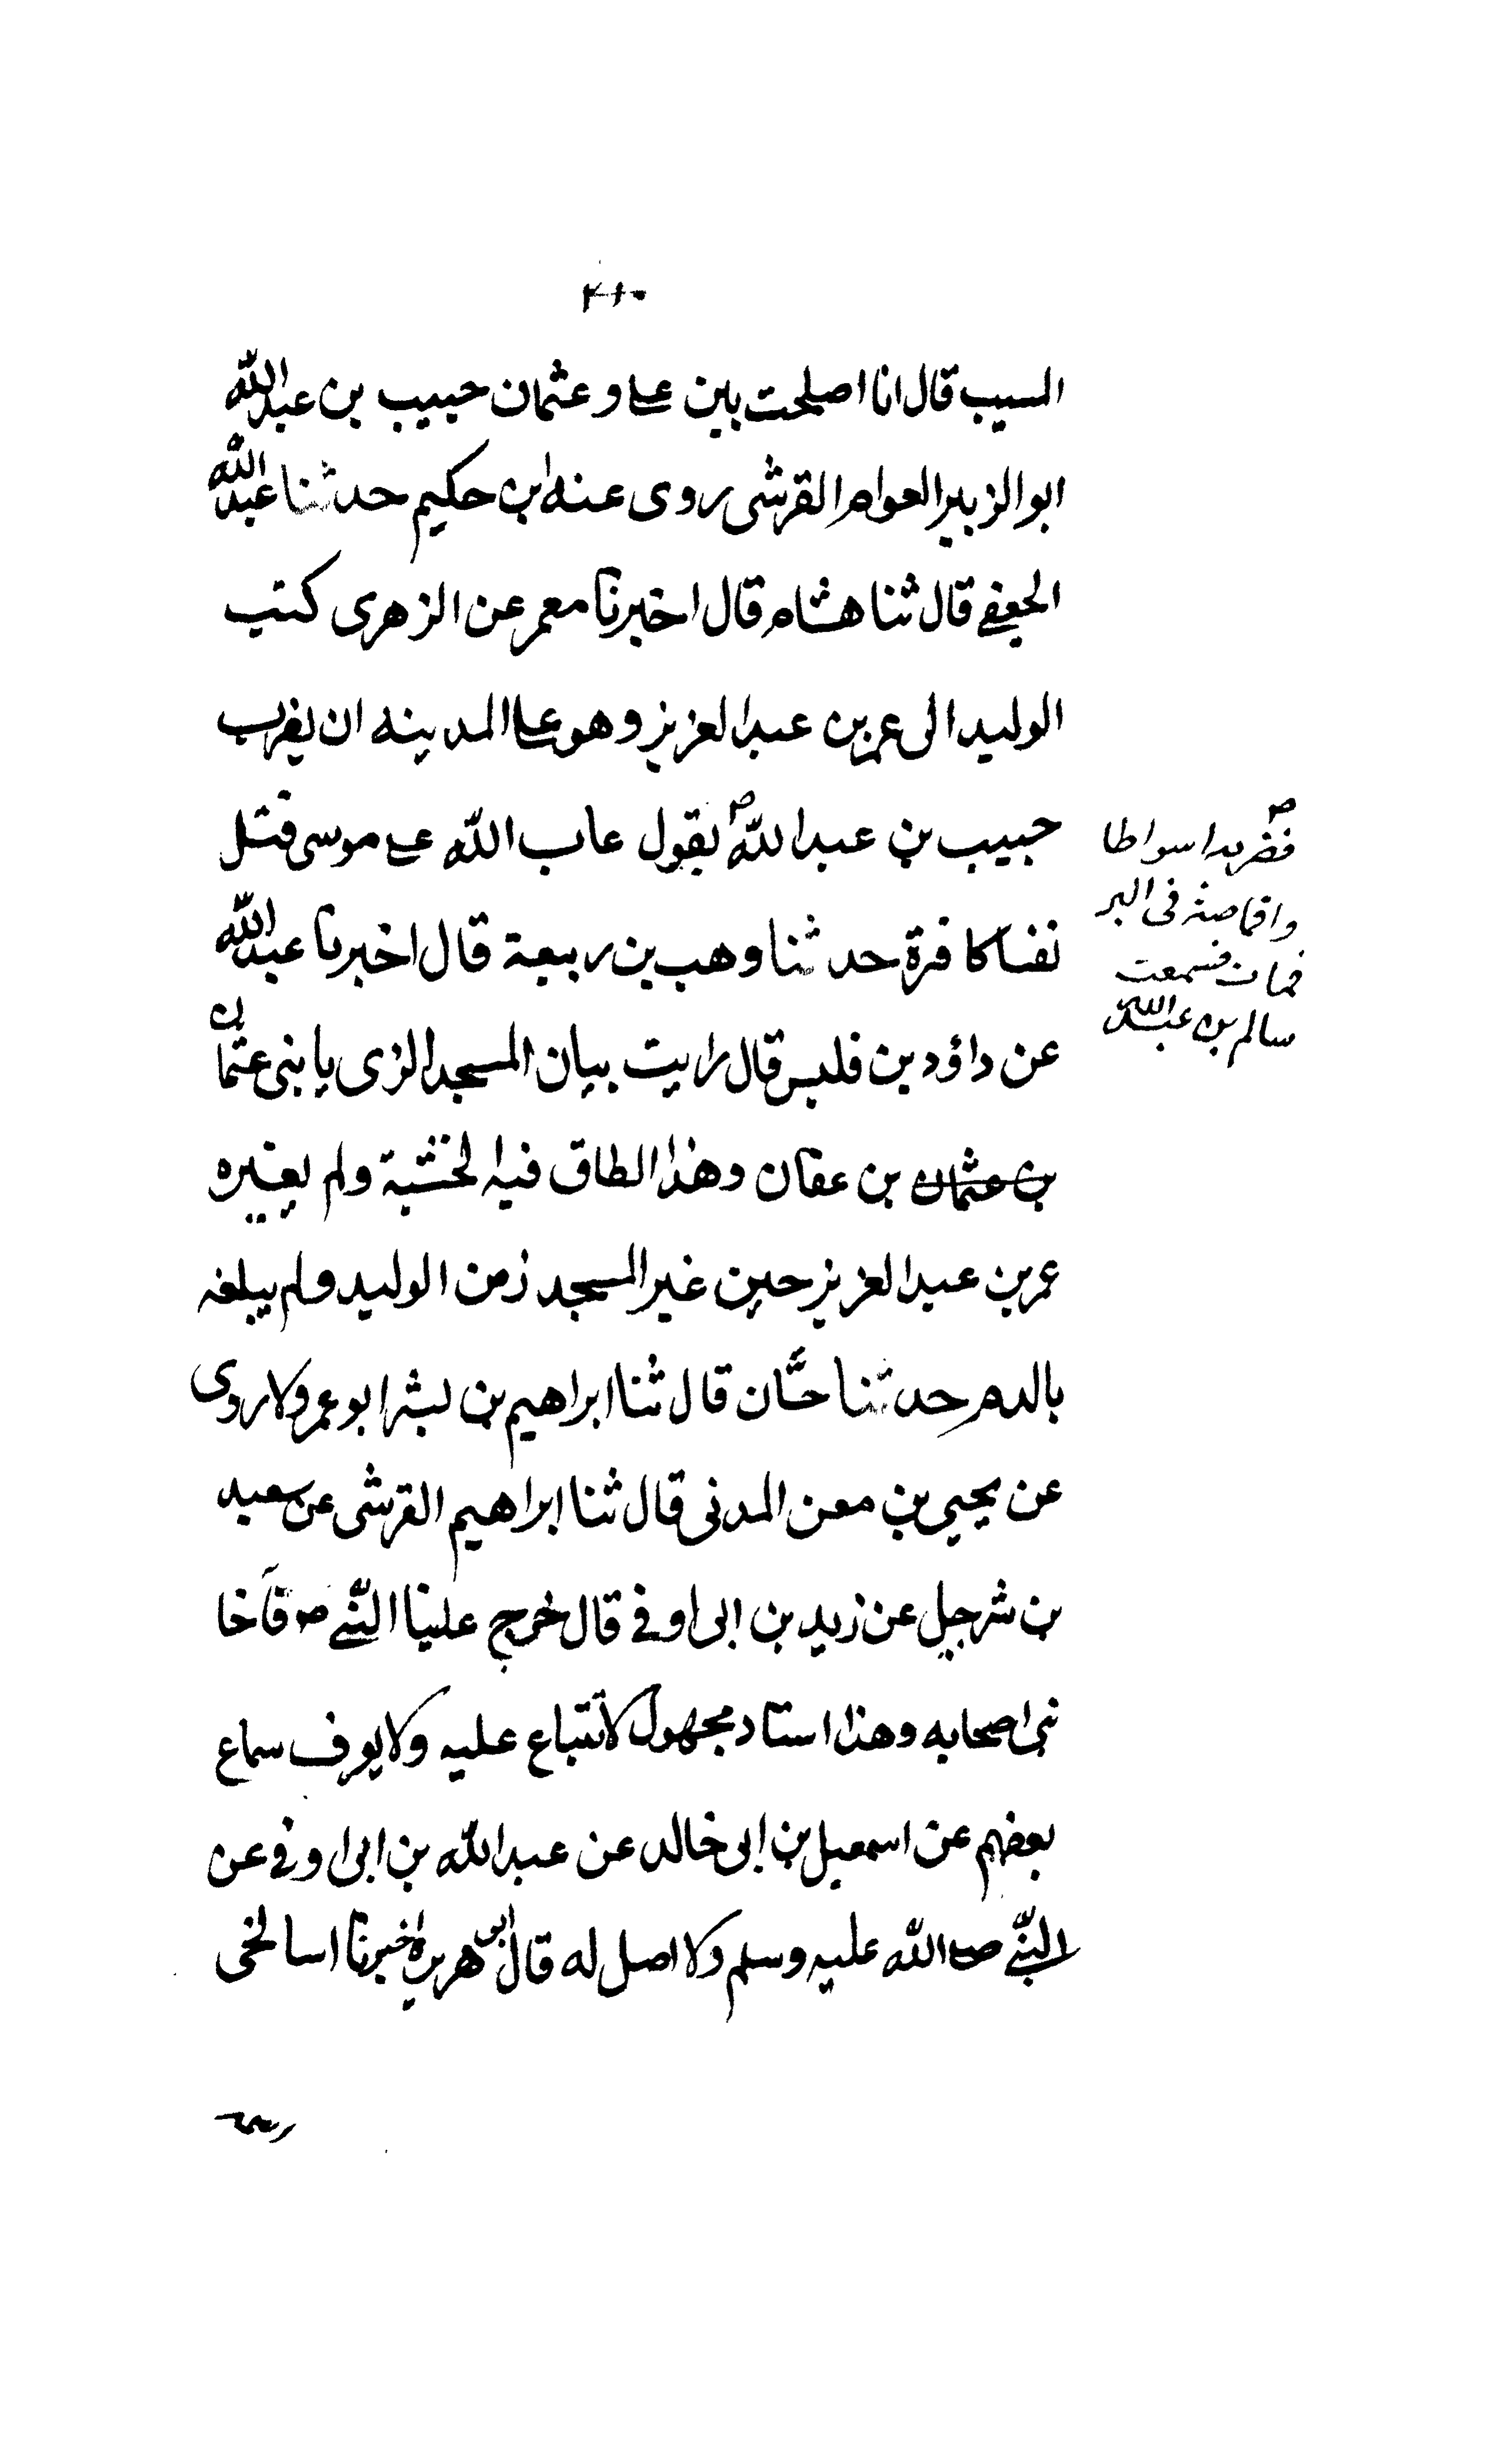 ٢١٠
المسيب قال انا اصلحت بين على و عثمان حبيب بن عبدالله
ابوالزبير العوام القرشى روى عنه ابن حكيم حدثنا عبدالله
الجعفى قال ثنا هشام قال اخبرنا معمر عن الزهرى كتب
الوليد الى عمر بن عبدالعزيز وهو على المدينه ان يضرب
حبيب بن عبدالله يقول عاب الله على موسى قتل
نفسا كافرة حدثنا وهب بن ربيعة قال اخبرنا عبدالله
عن داؤد بن قال رايت بيان المسجد الزى يا بنى عثمان
بن عثمان بن عفان وهذا الطاق فيه الخشبة ولم يغيره
عمر بن عبدالعزيز حين غير المسجد زمن الوليد ولم يبلغه
بالدم حدثنا حسّان قال ثنا ابراهيم بن بشر ابو عمرو لا روى
عن يحيى بن معن المدنى قال ثنا ابراهيم القرشى عن سعيد
بن شرجيل عن زيد بن ابى اوفى قال خرج علينا النّبى ص فآخا
نبى اصحابه وهذا استاد مجهول لا تتباع عليه ولا يوف سماع
بعضهم عن اسمعيل بن ابى خالد عن عبدالله بن ابى اوفى عن
النّبى صلى الله عليه وسلم ولا اصل له قال ابى هريره اخبرنا اسا لخى
ص
فضربه اسواطا
واقاصة فى البر
فمات فسمعت
سالم بن عبدالله